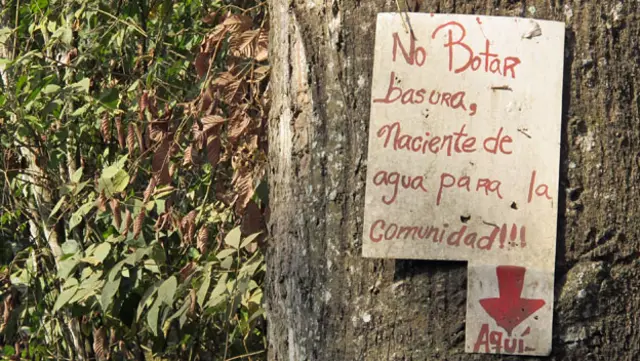 No Botar
basura,
Naciente de
agua para la
comunidad!!!
AQUÍ